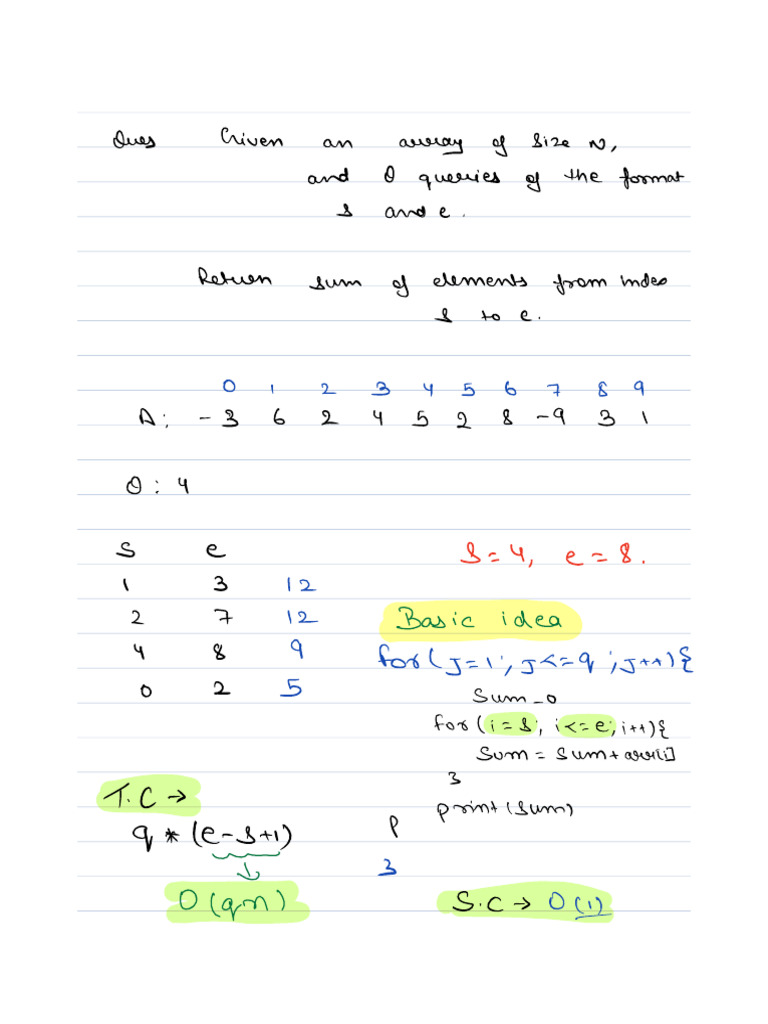 Ques Given an array of size N,
and Q queries of the format
s and e.
Return sum of elements from index
s to e.
0 1 2 3 4 5 6 7 8 9
A: -3 6 2 4 5 2 8 -9 3 1
Q: 4
s e
s=4, e=8.
1 3 12
2 7 12
4 8 9
0 2 5
Basic idea
for(j=1; j<=q; j++){
sum=0
for(i=s; i<=e; i++){
sum = sum+arr[i]
}
print(sum)
p
}
T.C →
q * (e-s+1)
↓
O(qn)
S.C → O(1)